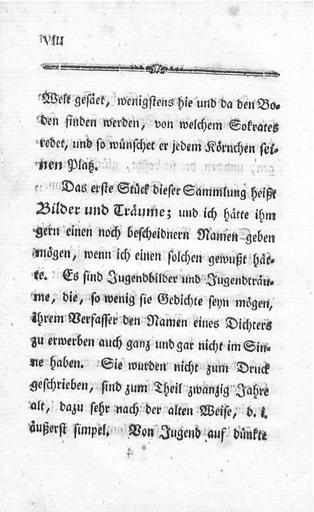 VIII
Welt gesäet, wenigstens hie und da den Bo-
den finden werden, von welchem Sokrates
redet, und so wünschet er jedem Körnchen sei-
nen Platz.
Das erste Stück dieser Sammlung heißt
Bilder und Träume; und ich hätte ihm
gern einen noch bescheidnern Namen geben
mögen, wenn ich einen solchen gewußt hät-
te. Es sind Jugendbilder und Jugendträu-
me, die, so wenig sie Gedichte seyn mögen,
ihrem Verfasser den Namen eines Dichters
zu erwerben auch ganz und gar nicht im Sin-
ne haben. Sie wurden nicht zum Druck
geschrieben, sind zum Theil zwanzig Jahre
alt, dazu sehr nach der alten Weise, d. i.
äußerst simpel. Von Jugend auf dünkte